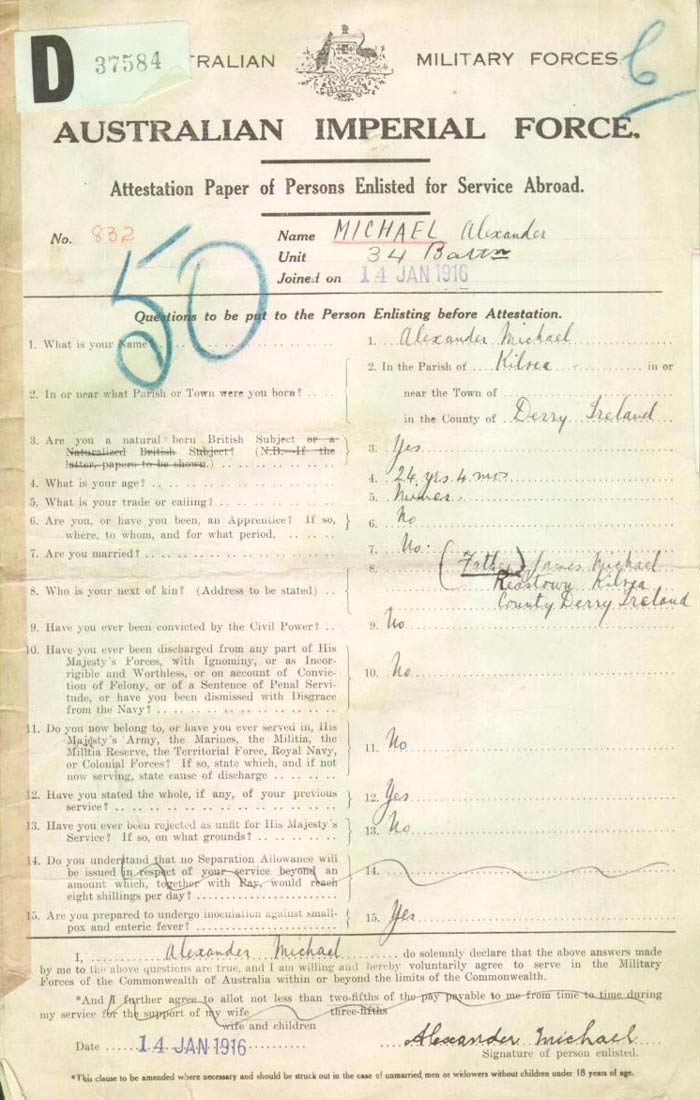 D 37584
TRALIAN MILITARY FORCES
AUSTRALIAN IMPERIAL FORCE.
Attestation Paper of Persons Enlisted for Service Abroad.
No. 832
Name MICHAEL Alexander
Unit 34 Battn
Joined on 14 JAN 1916
50
Questions to be put to the Person Enlisting before Attestation.
1. What is your Name
1. Alexander Michael
2. In or near what Parish or Town were you born?
2. In the Parish of Kilrea in or
near the Town of
in the County of Derry Ireland
3. Are you a natural born British Subject or a
Naturalized British Subject? (N.B.—If the
latter, papers to be shown.)
3. Yes
4. What is your age?
4. 24 yrs 4 mos
5. What is your trade or calling?
5. Miner
6. Are you, or have you been, an Apprentice? If so,
where, to whom, and for what period,
6. No
7. Are you married?
7. No.
8. Who is your next of kin? (Address to be stated)
8. (Father) James Michael
Kilrea
County Derry Ireland
9. Have you ever been convicted by the Civil Power?
9. No
10. Have you ever been discharged from any part of His
Majesty's Forces, with Ignominy, or as Incor-
rigible and Worthless, or on account of Convic-
tion of Felony, or of a Sentence of Penal Servi-
tude, or have you been dismissed with Disgrace
from the Navy?
10. No
11. Do you now belong to, or have you ever served in, His
Majesty's Army, the Marines, the Militia, the
Militia Reserve, the Territorial Force, Royal Navy,
or Colonial Forces? If so, state which, and if not
now serving, state cause of discharge
11. No
12. Have you stated the whole, if any, of your previous
service?
12. Yes
13. Have you ever been rejected as unfit for His Majesty's
Service? If so, on what grounds?
13. No
14. Do you understand that no Separation Allowance will
be issued in respect of your service beyond an
amount which, together with Pay, would reach
eight shillings per day?
14.
15. Are you prepared to undergo inoculation against small-
pox and enteric fever?
15. Yes
I, Alexander Michael do solemnly declare that the above answers made
by me to the above questions are true, and I am willing and hereby voluntarily agree to serve in the Military
Forces of the Commonwealth of Australia within or beyond the limits of the Commonwealth.
*And I further agree to allot not less than two-fifths of the pay payable to me from time to time during
three-fifths
my service for the support of my wife
wife and children
Date 14 JAN 1916
Alexander Michael
Signature of person enlisted.
*This clause to be amended where necessary and should be struck out in the case of unmarried men or widowers without children under 18 years of age.